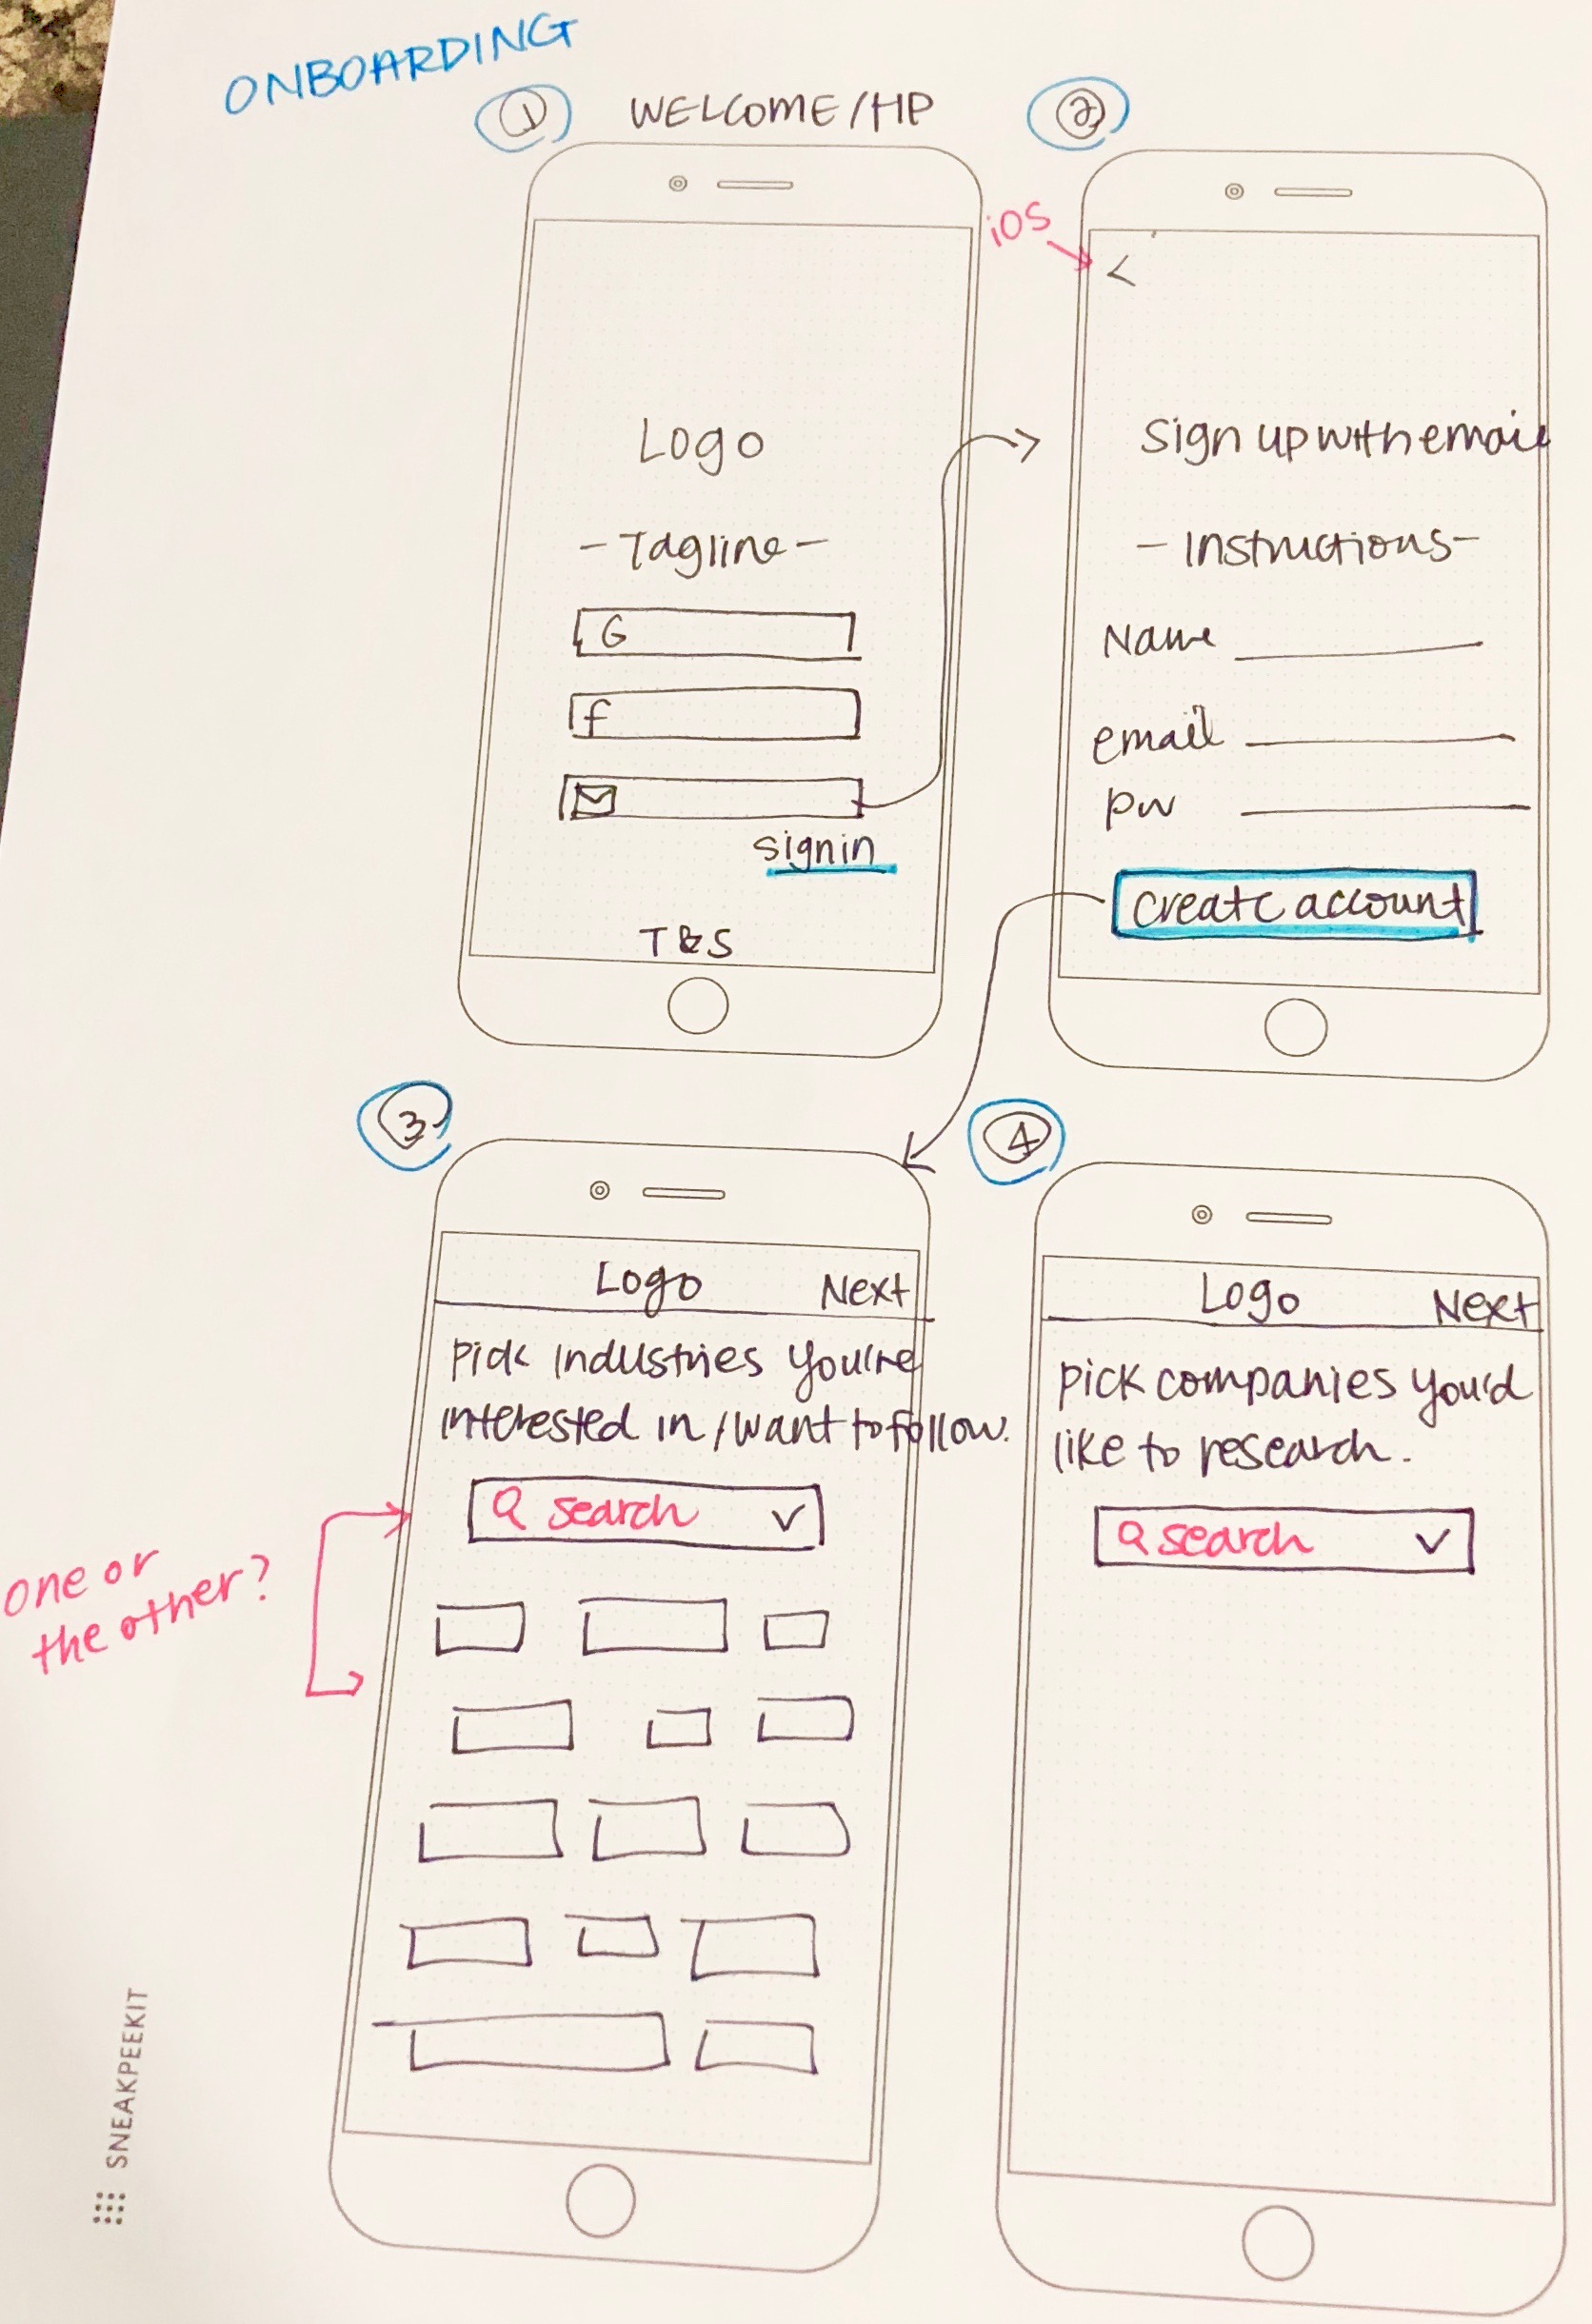 ONBOARDING
1 WELCOME/HP
Logo
-Tagline-
G
f
signin
T&S
2
iOS
<
Sign up with email
-Instructions-
Name
email
pw
create account
3
Logo Next
Pick industries you're
interested in/want to follow.
search
one or
the other?
4
Logo Next
pick companies you'd
like to research.
search
SNEAKPEEKIT